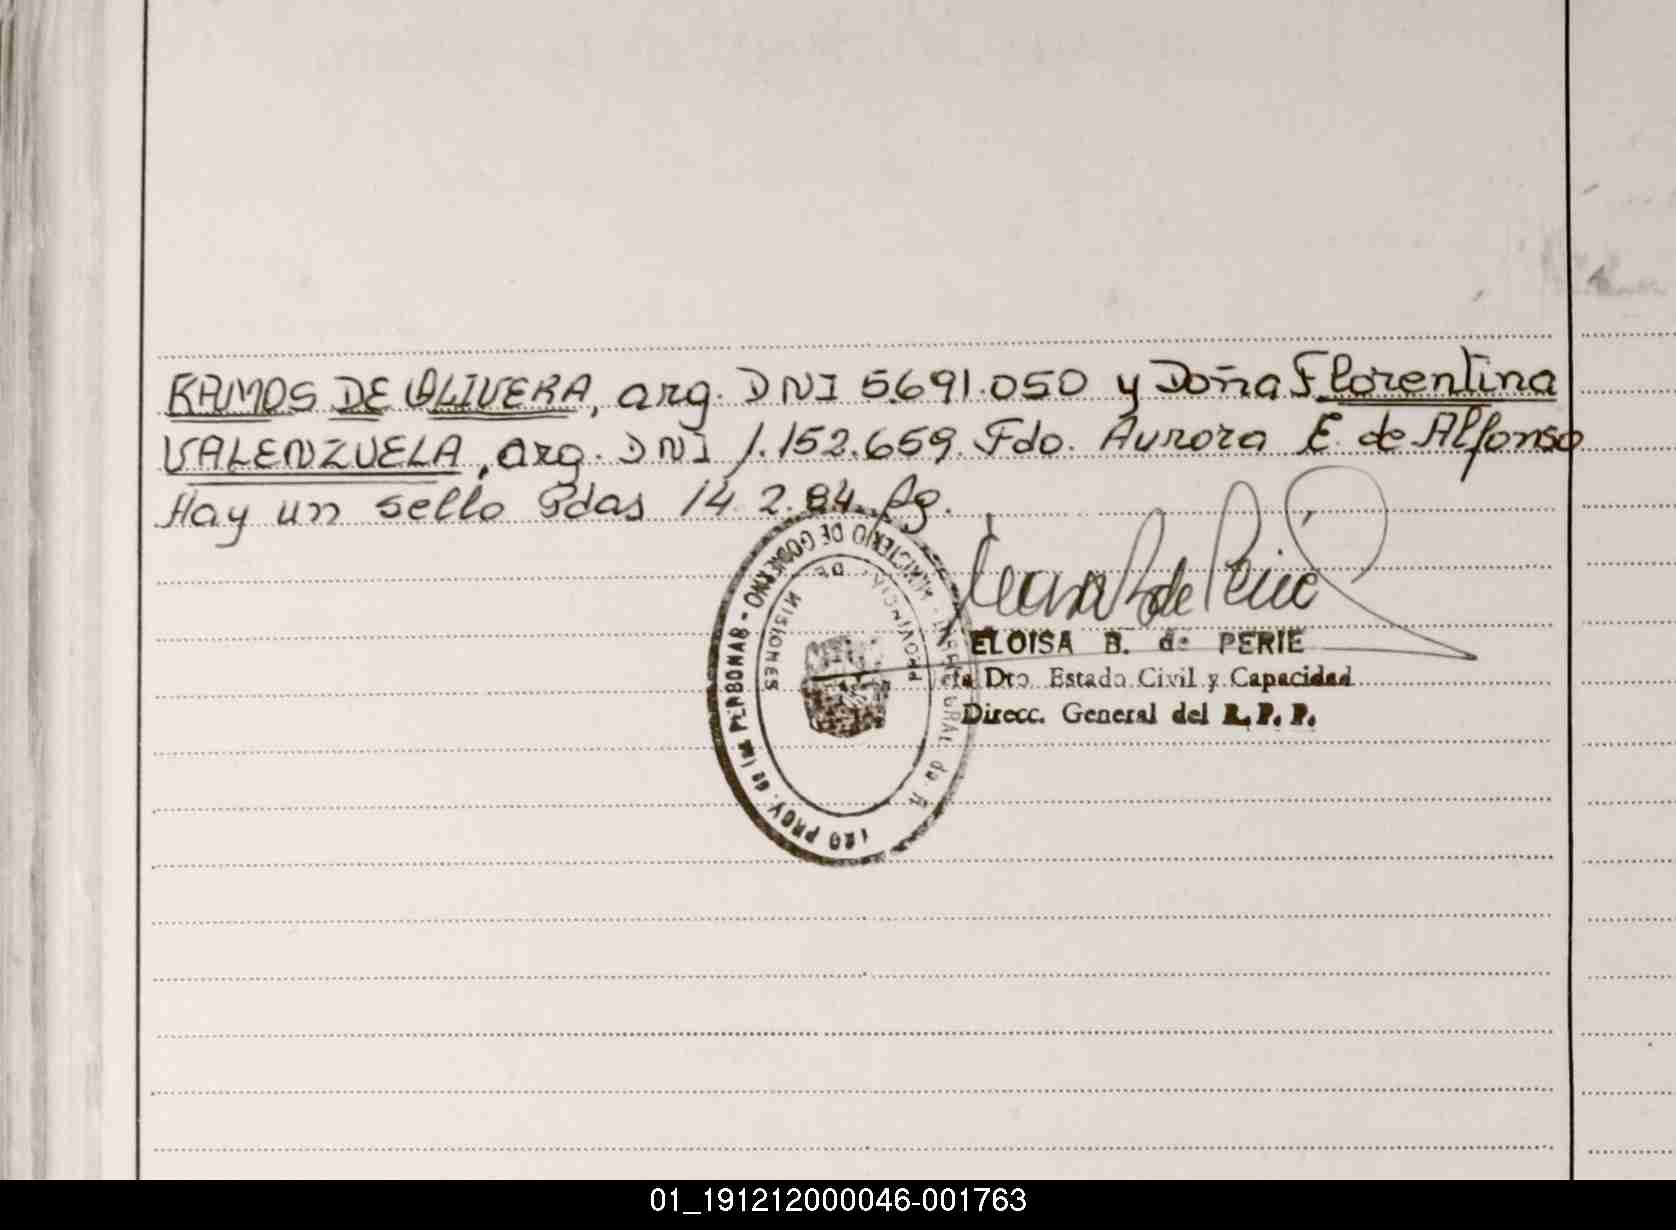 RAMOS DE OLIVERA, arg. DNI 5.691.050 y Doña Florentina
VALENZUELA, arg. DNI 1.152.659. Fdo. Aurora E. de Alfonso
Hay un sello Pdas 14.2.84. fg.
MINISTERIO DE GOBIERNO - de las PERSONAS -
PROVINCIA DE MISIONES
ELOISA B. de PERIE
Dto. Estado Civil y Capacidad
Direcc. General del R. P. P.
01_191212000046-001763